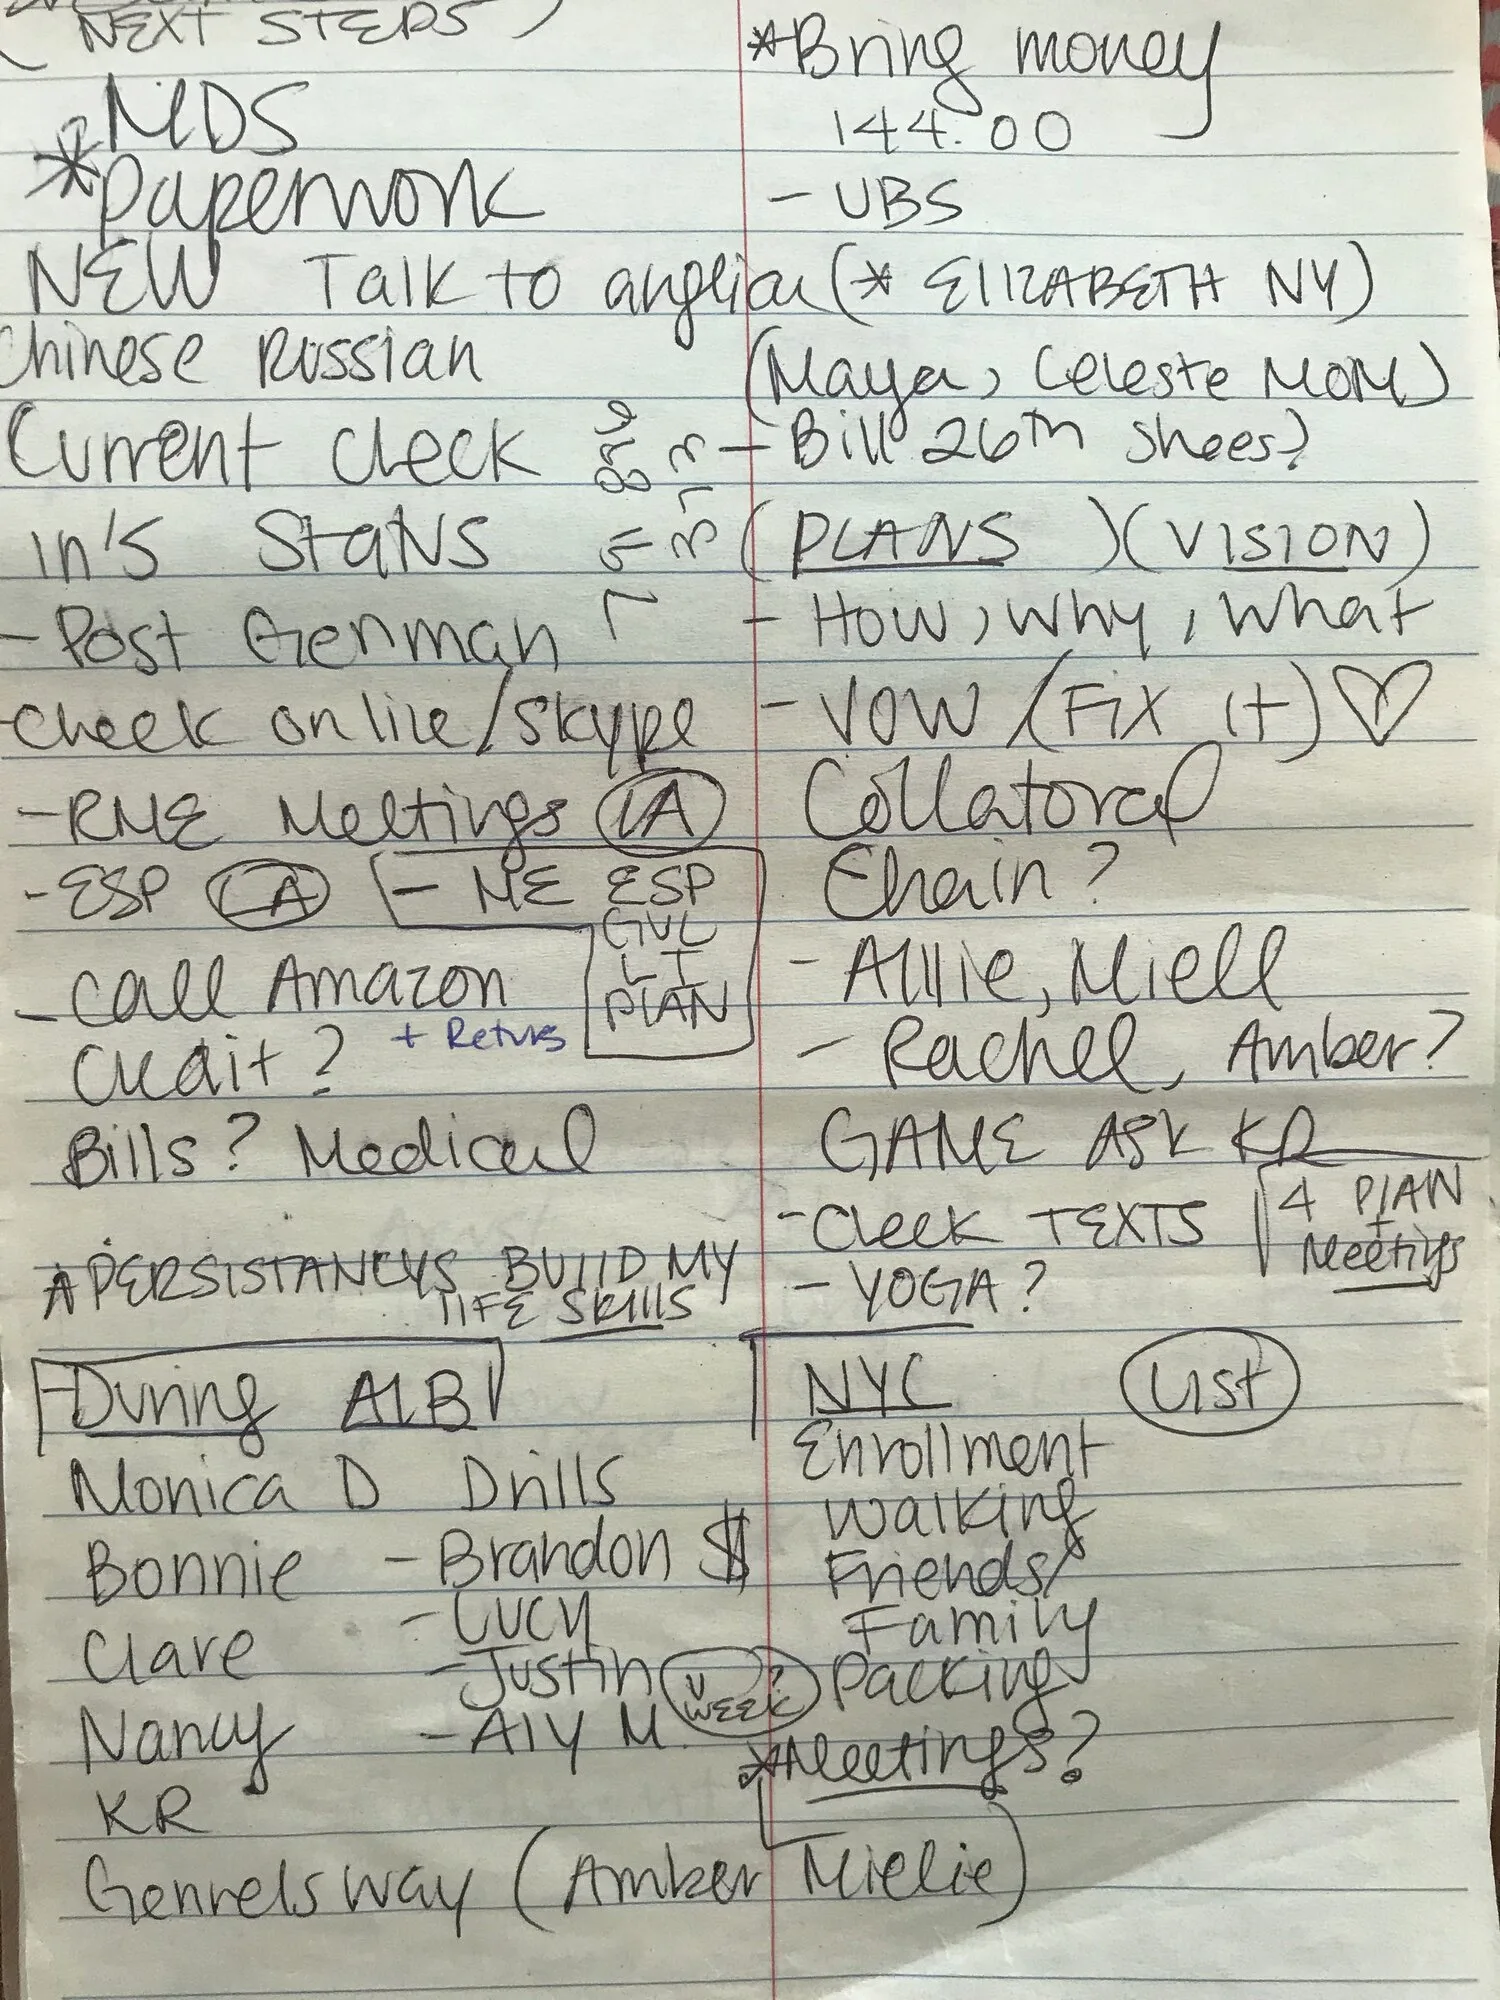 (NEXT STEPS)
MDS
*Paperwork
NEW Talk to
Chinese Russian
Current Check
in's Status
- Post German
- Check online/Skype
- RME Meetings LA
- ESP LA
- ME ESP
GVL
LT
PLAN
- Call Amazon
+ Returns
Credit?
Bills? Medical
*PERSISTANCYS BUILD MY
LIFE SKILLS
During ALB
Monica D Drills
Bonnie - Brandon $
- Lucy
Clare
- Justin
Nancy - Aly M.
WEEK?
KR
Genrels way (Amber Mielie)
*Bring money
144.00
- UBS
(* ELIZABETH NY)
(Maya, Celeste MOM)
- Bill 26th Shoes?
(PLANS) (VISION)
- How, Why, What
- VOW (Fix it)
Collatoral
Chain?
- Allie, Miell
- Rachel, Amber?
GAME ASK KR
- Check TEXTS
4 PLAN
+
Meetings
- YOGA?
NYC List
Enrollment
Walking
Friends/
Family
Packing
*Meetings?